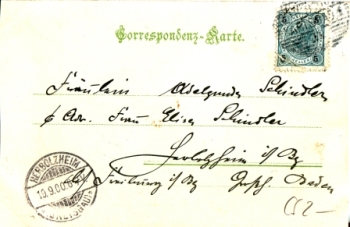 Correspondenz-Karte.
Fräulein Adelgunde Schindler
p. Adr. Frau Elise Schindler
Herbolzheim i/Bg
bei Freiburg i/Bg Großh. Baden
HERBOLZHEIM
19.9.00
(BREISGAU)